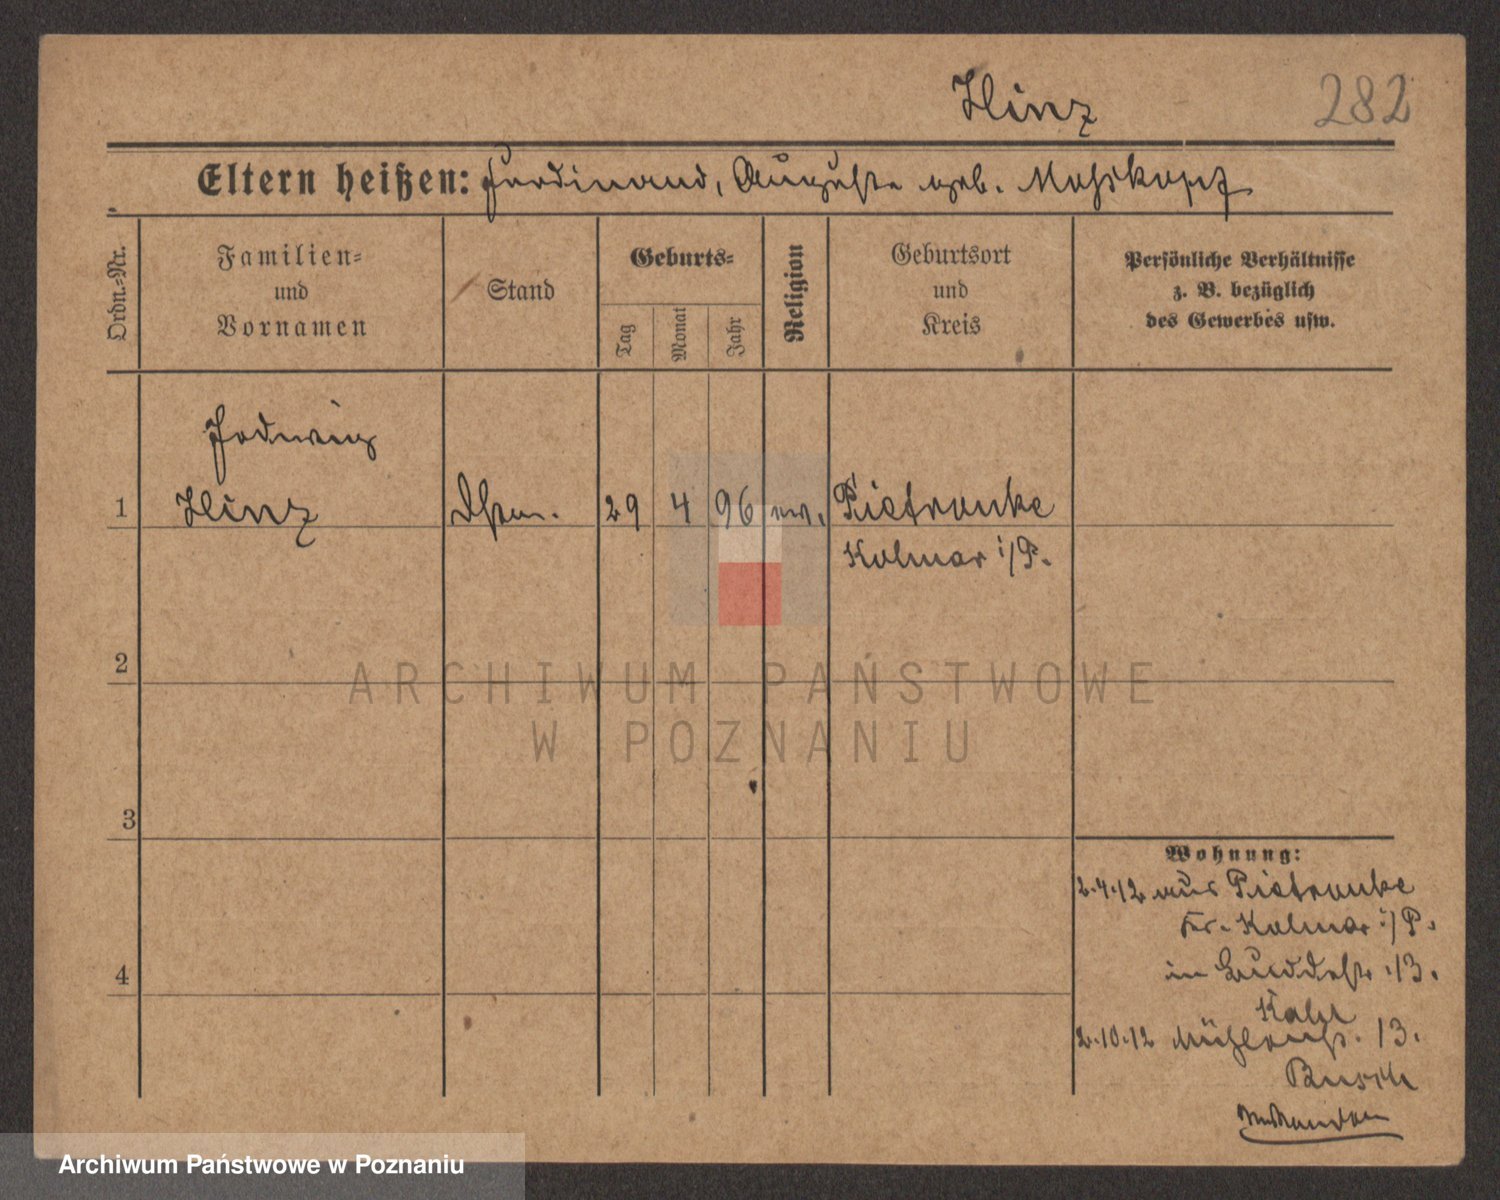 Hinz
282
Eltern heißen: Ferdinand, Auguste geb. Mosskopf
Ordn.-Nr.
Familien-
und
Vornamen
Stand
Geburts-
Tag
Monat
Jahr
Religion
Geburtsort
und
Kreis
Persönliche Verhältnisse
z. B. bezüglich
des Gewerbes usw.
Hedwig
1 Hinz 29 4 96 ev. Pietronke
Kolmar i/P.
2
ARCHIWUM PAŃSTWOWE
W POZNANIU
3
Wohnung:
2.4.12 aus Pietronke
Kr. Kolmar i/P.
in 13.
4
2.10.12 Mühlenstr. 13.
Busch
Archiwum Państwowe w Poznaniu